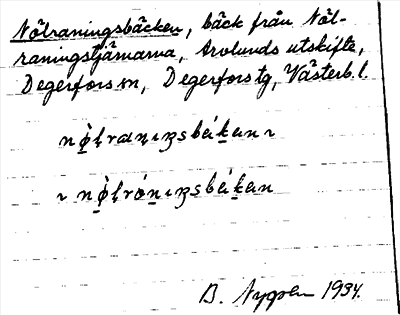 Nötraningsbäcken, bäck från Nöt-
raningstjärnarna, Arvlunds utskifte,
Degerfors sn, Degerfors tg, Västerb. l.
nø̣̀tranıŋsbékan ı
ı nø̣̀trónıŋsbékan
B. Nygren 1934.